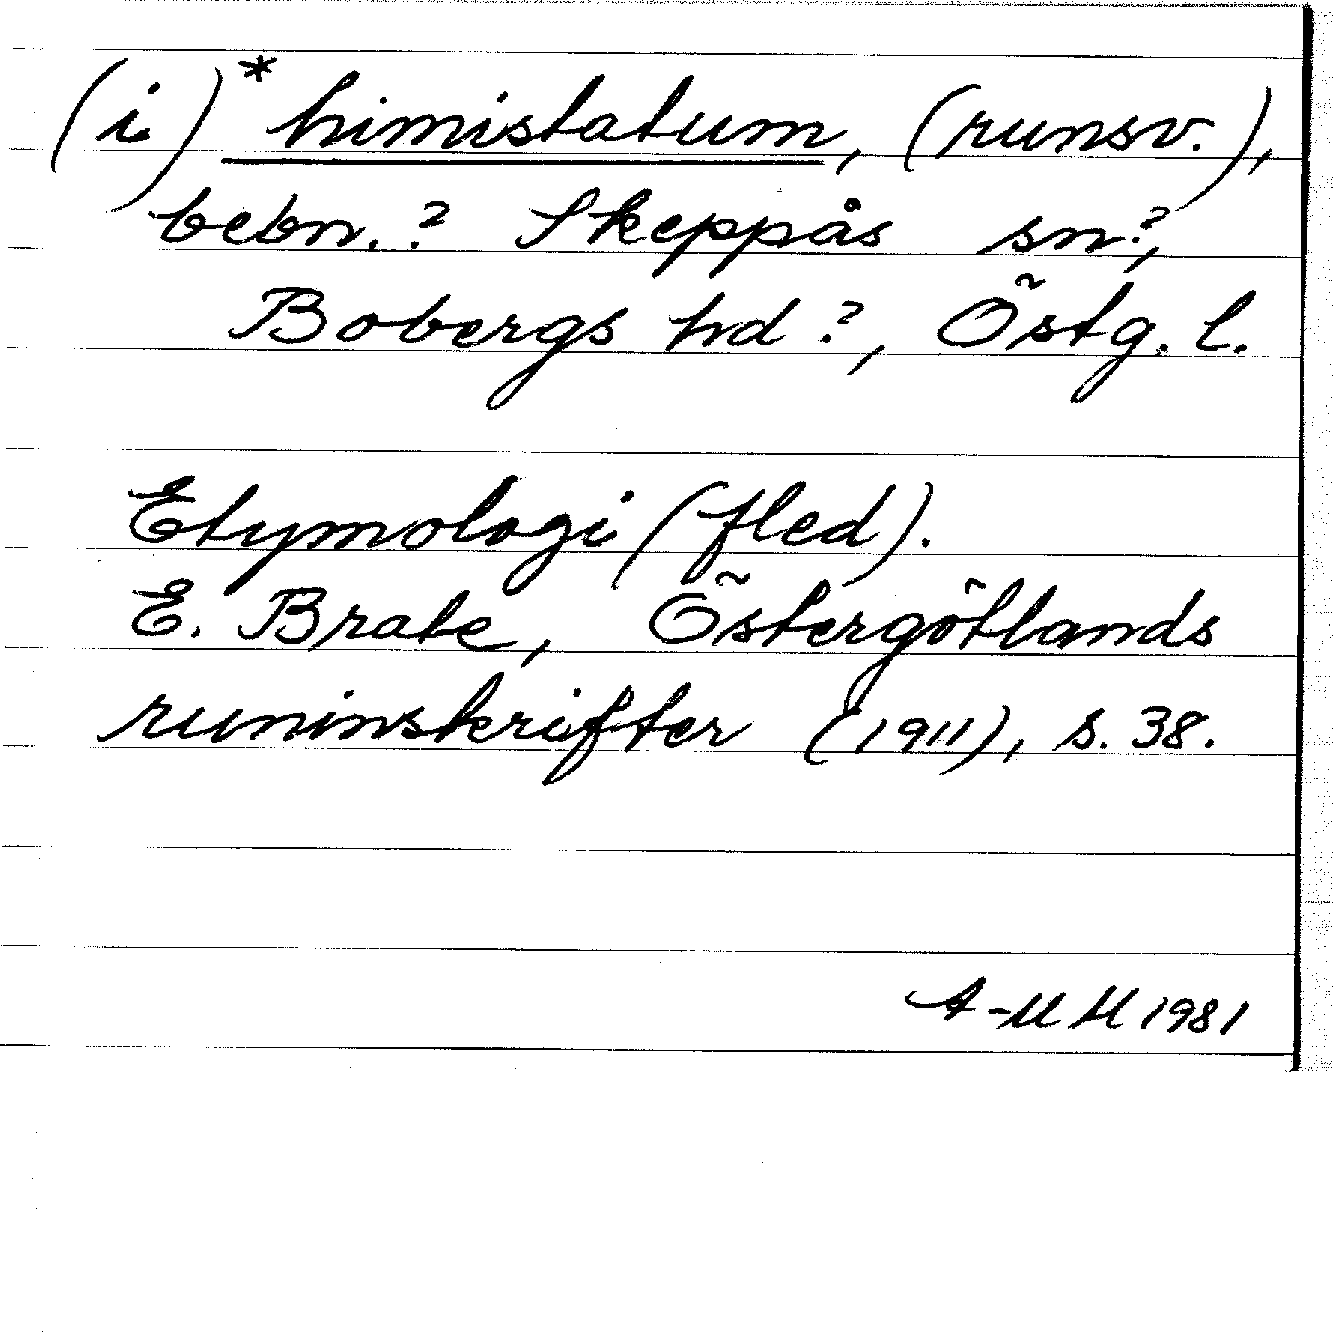 (i) * himistatum, (runsv.),
bebn.? Skeppås sn?,
Bobergs hd?, Östg. l.
Etymologi (fled).
E. Brate, Östergötlands
runinskrifter (1911), s. 38.
A-MH 1981